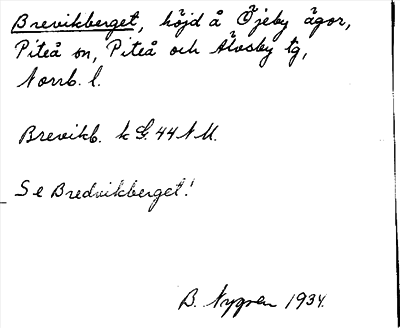 Brevikberget, höjd å Öjeby ägor,
Piteå sn, Piteå och Älvsby tg,
Norrb. l.
Brevikb. k G. 44 N.U.
Se Bredvikberget!
B. Nygren 1934.